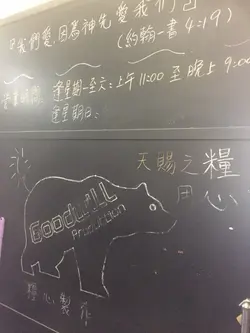 我們愛因為神先愛我們
(約翰一書 4:19)
營業時間: 逢星期一至六: 上午 11:00 至 晚上 9:00
逢星期日:
天賜之糧
用心
Goodwill
Production